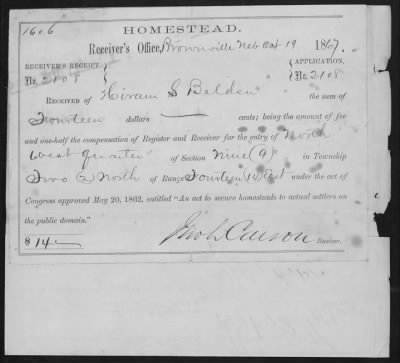 1606
HOMESTEAD.
Receiver's Office, Brownville Neb Oct 19 1867.
RECEIVER'S RECEIPT, No. 2108
APPLICATION, No. 2108
RECEIVED OF Hiram S Belden the sum of
Fourteen dollars — cents; being the amount of fee
and one-half the compensation of Register and Receiver for the entry of North
West quarter of Section Nine (9) in Township
Two (2) North of Range Fourteen (14) East under the act of
Congress approved May 20, 1862, entitled "An act to secure homesteads to actual settlers on
the public domain."
$ 14 — Jno L Carson Receiver.